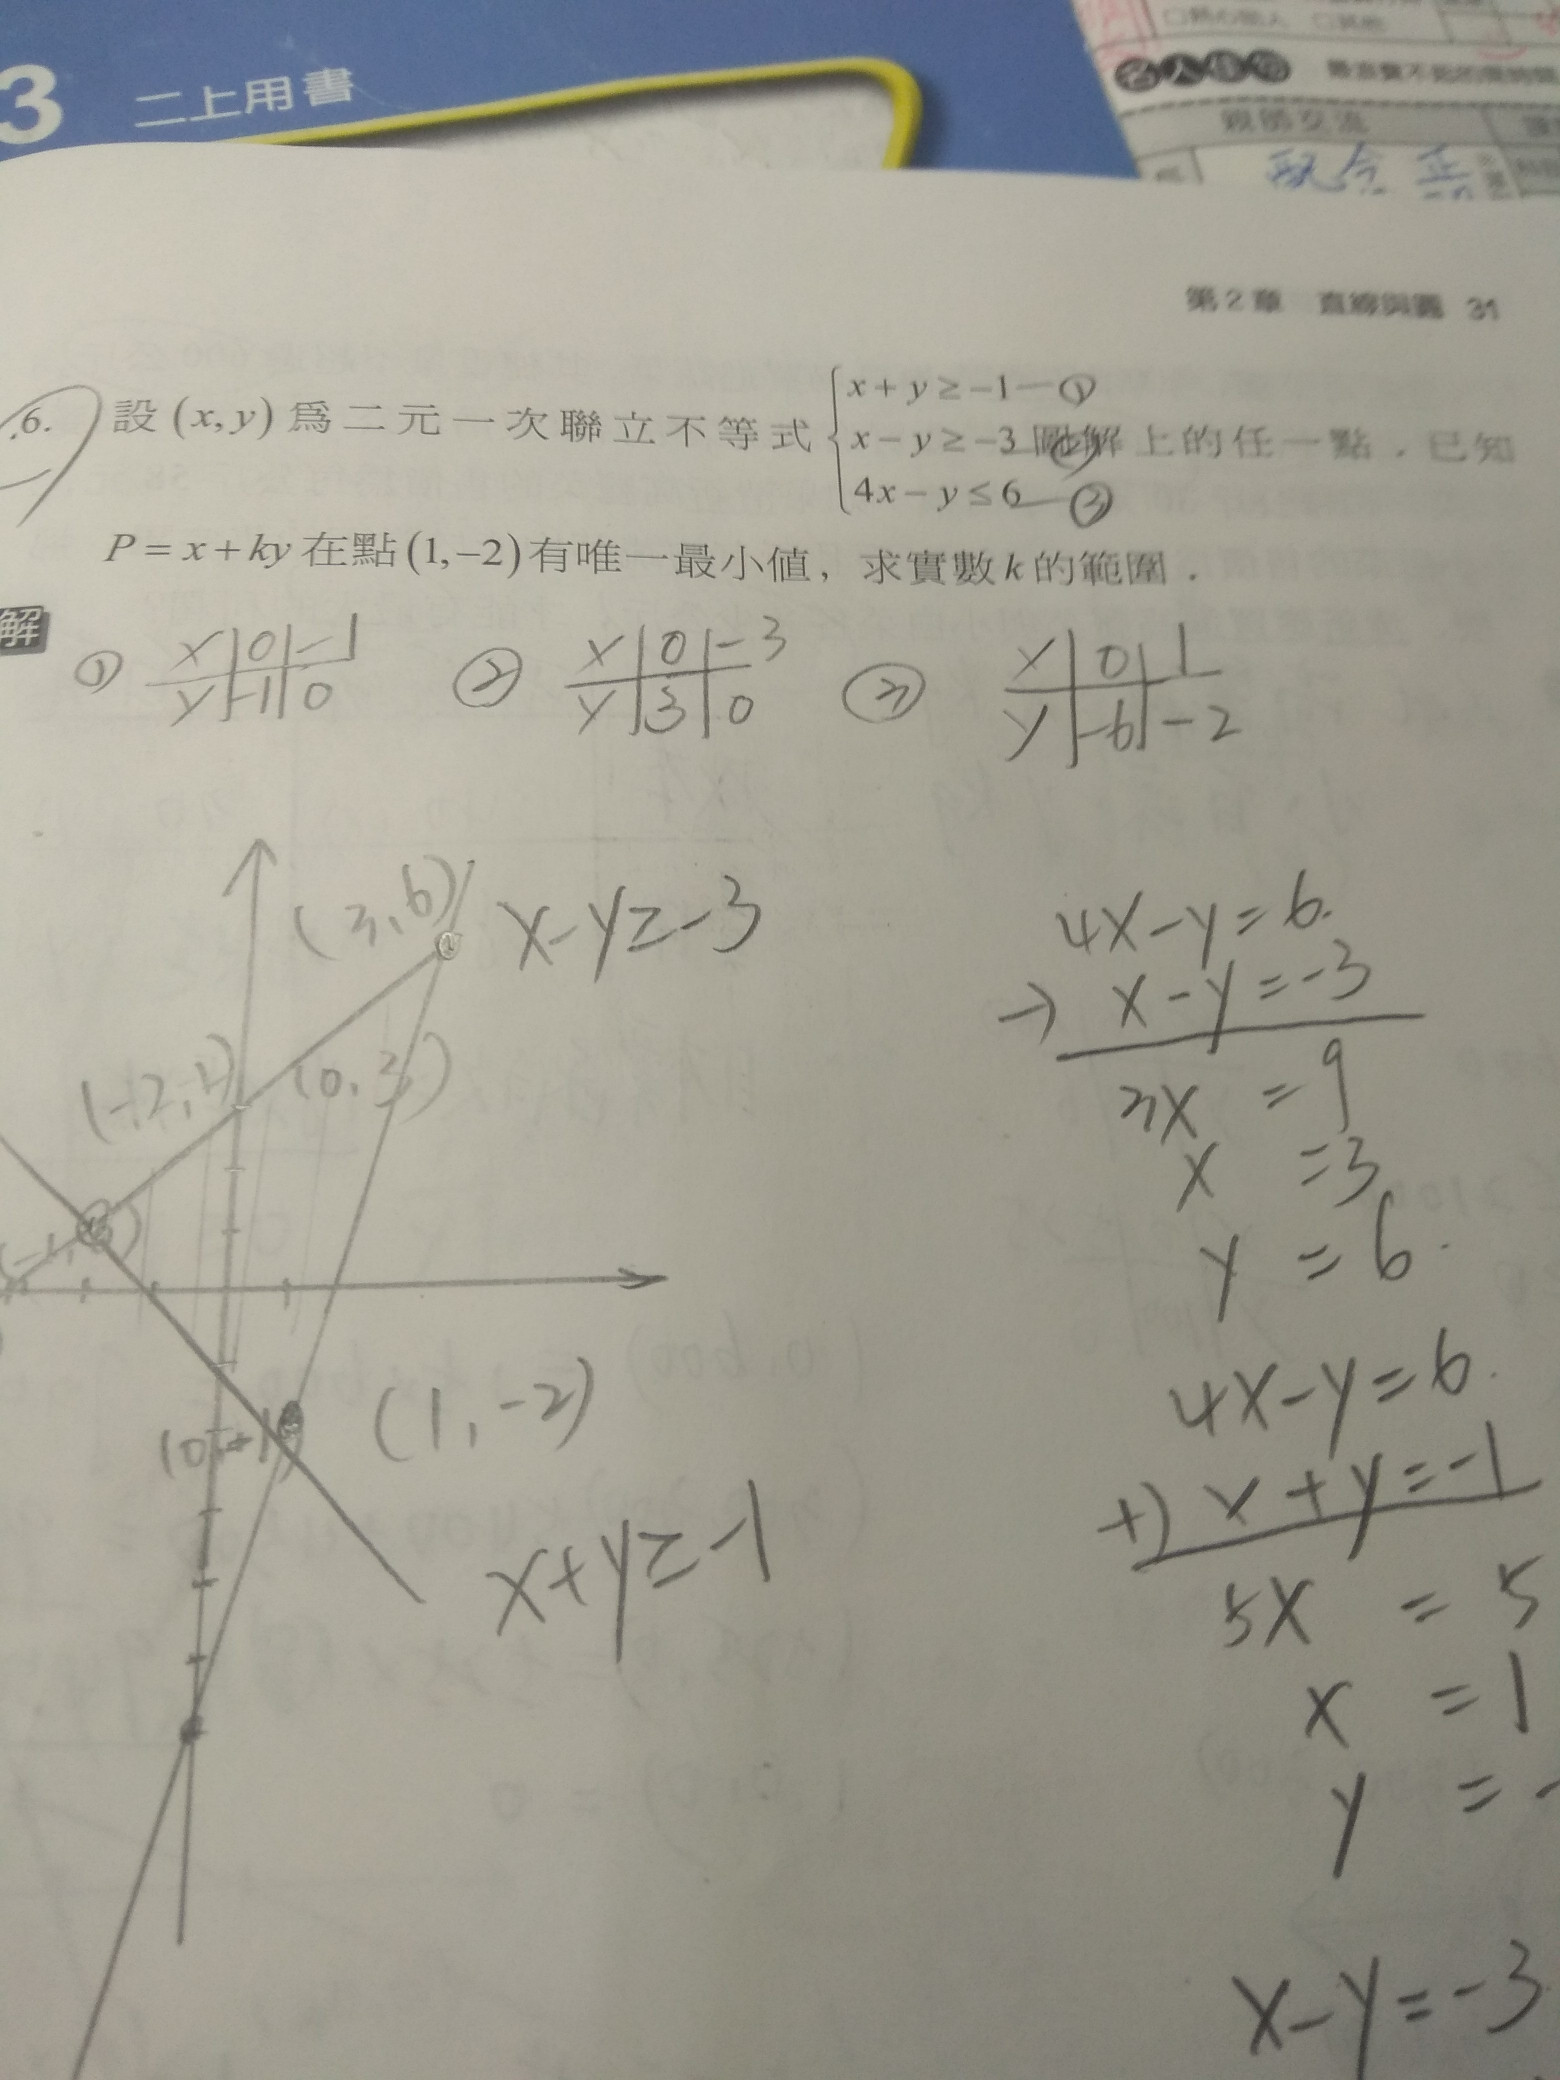 3 二上用書
親師交流
配合
第2章 直線與圓 31
6. 設 (x, y) 為二元一次聯立不等式 { x + y ≥ −1 —①
x − y ≥ −3 —② 圖解上的任一點．已知
4x − y ≤ 6 —③
P = x + ky 在點 (1, −2) 有唯一最小值，求實數 k 的範圍．
解
① x | 0 | −1
y | −1 | 0
② x | 0 | −3
y | 3 | 0
③ x | 0 | 1
y | −6 | −2
(3, 6)
x−y≥−3
(−2, 1)
(0, 3)
(1, −2)
x+y≥−1
4x−y=6.
→) x−y=−3
3x = 9
x = 3
y = 6.
4x−y=6.
+) x+y=−1
5x = 5
x = 1
y = -
x−y=−3